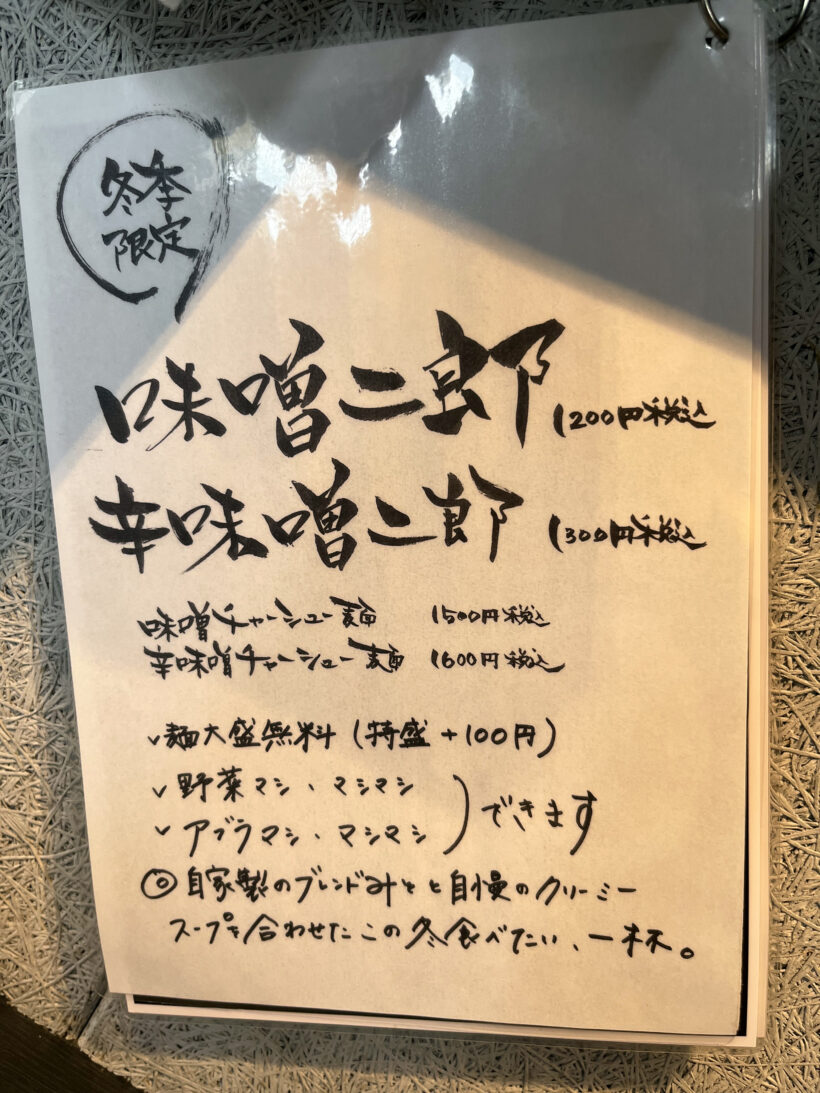 冬季
限定
味噌二郎 1200円税込
辛味噌二郎 1300円税込
味噌チャーシュー麺 1500円税込
辛味噌チャーシュー麺 1600円税込
✓麺大盛無料(特盛+100円)
✓野菜マシ、マシマシ
✓アブラマシ、マシマシ
)できます
◎自家製のブレンドみそと自慢のクリーミー
スープを合わせたこの冬食べたい、一杯。